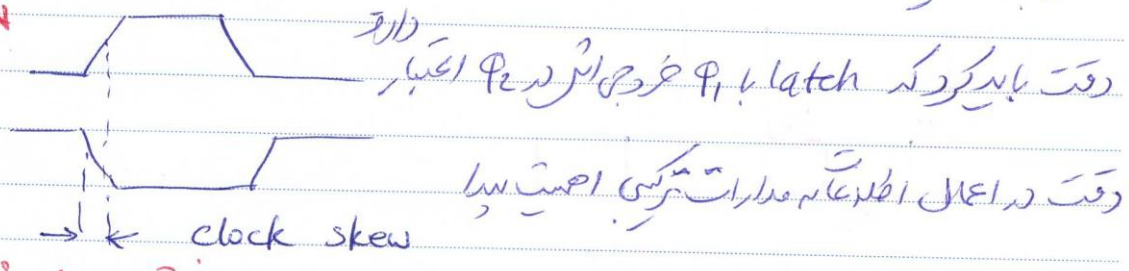 دقت باید کرد که latch با φ1 خروجی اش در φ2 اعتبار دارد
دقت در اعمال اطلاعات به مدارات ترکیبی اهمیت پیدا
clock skew